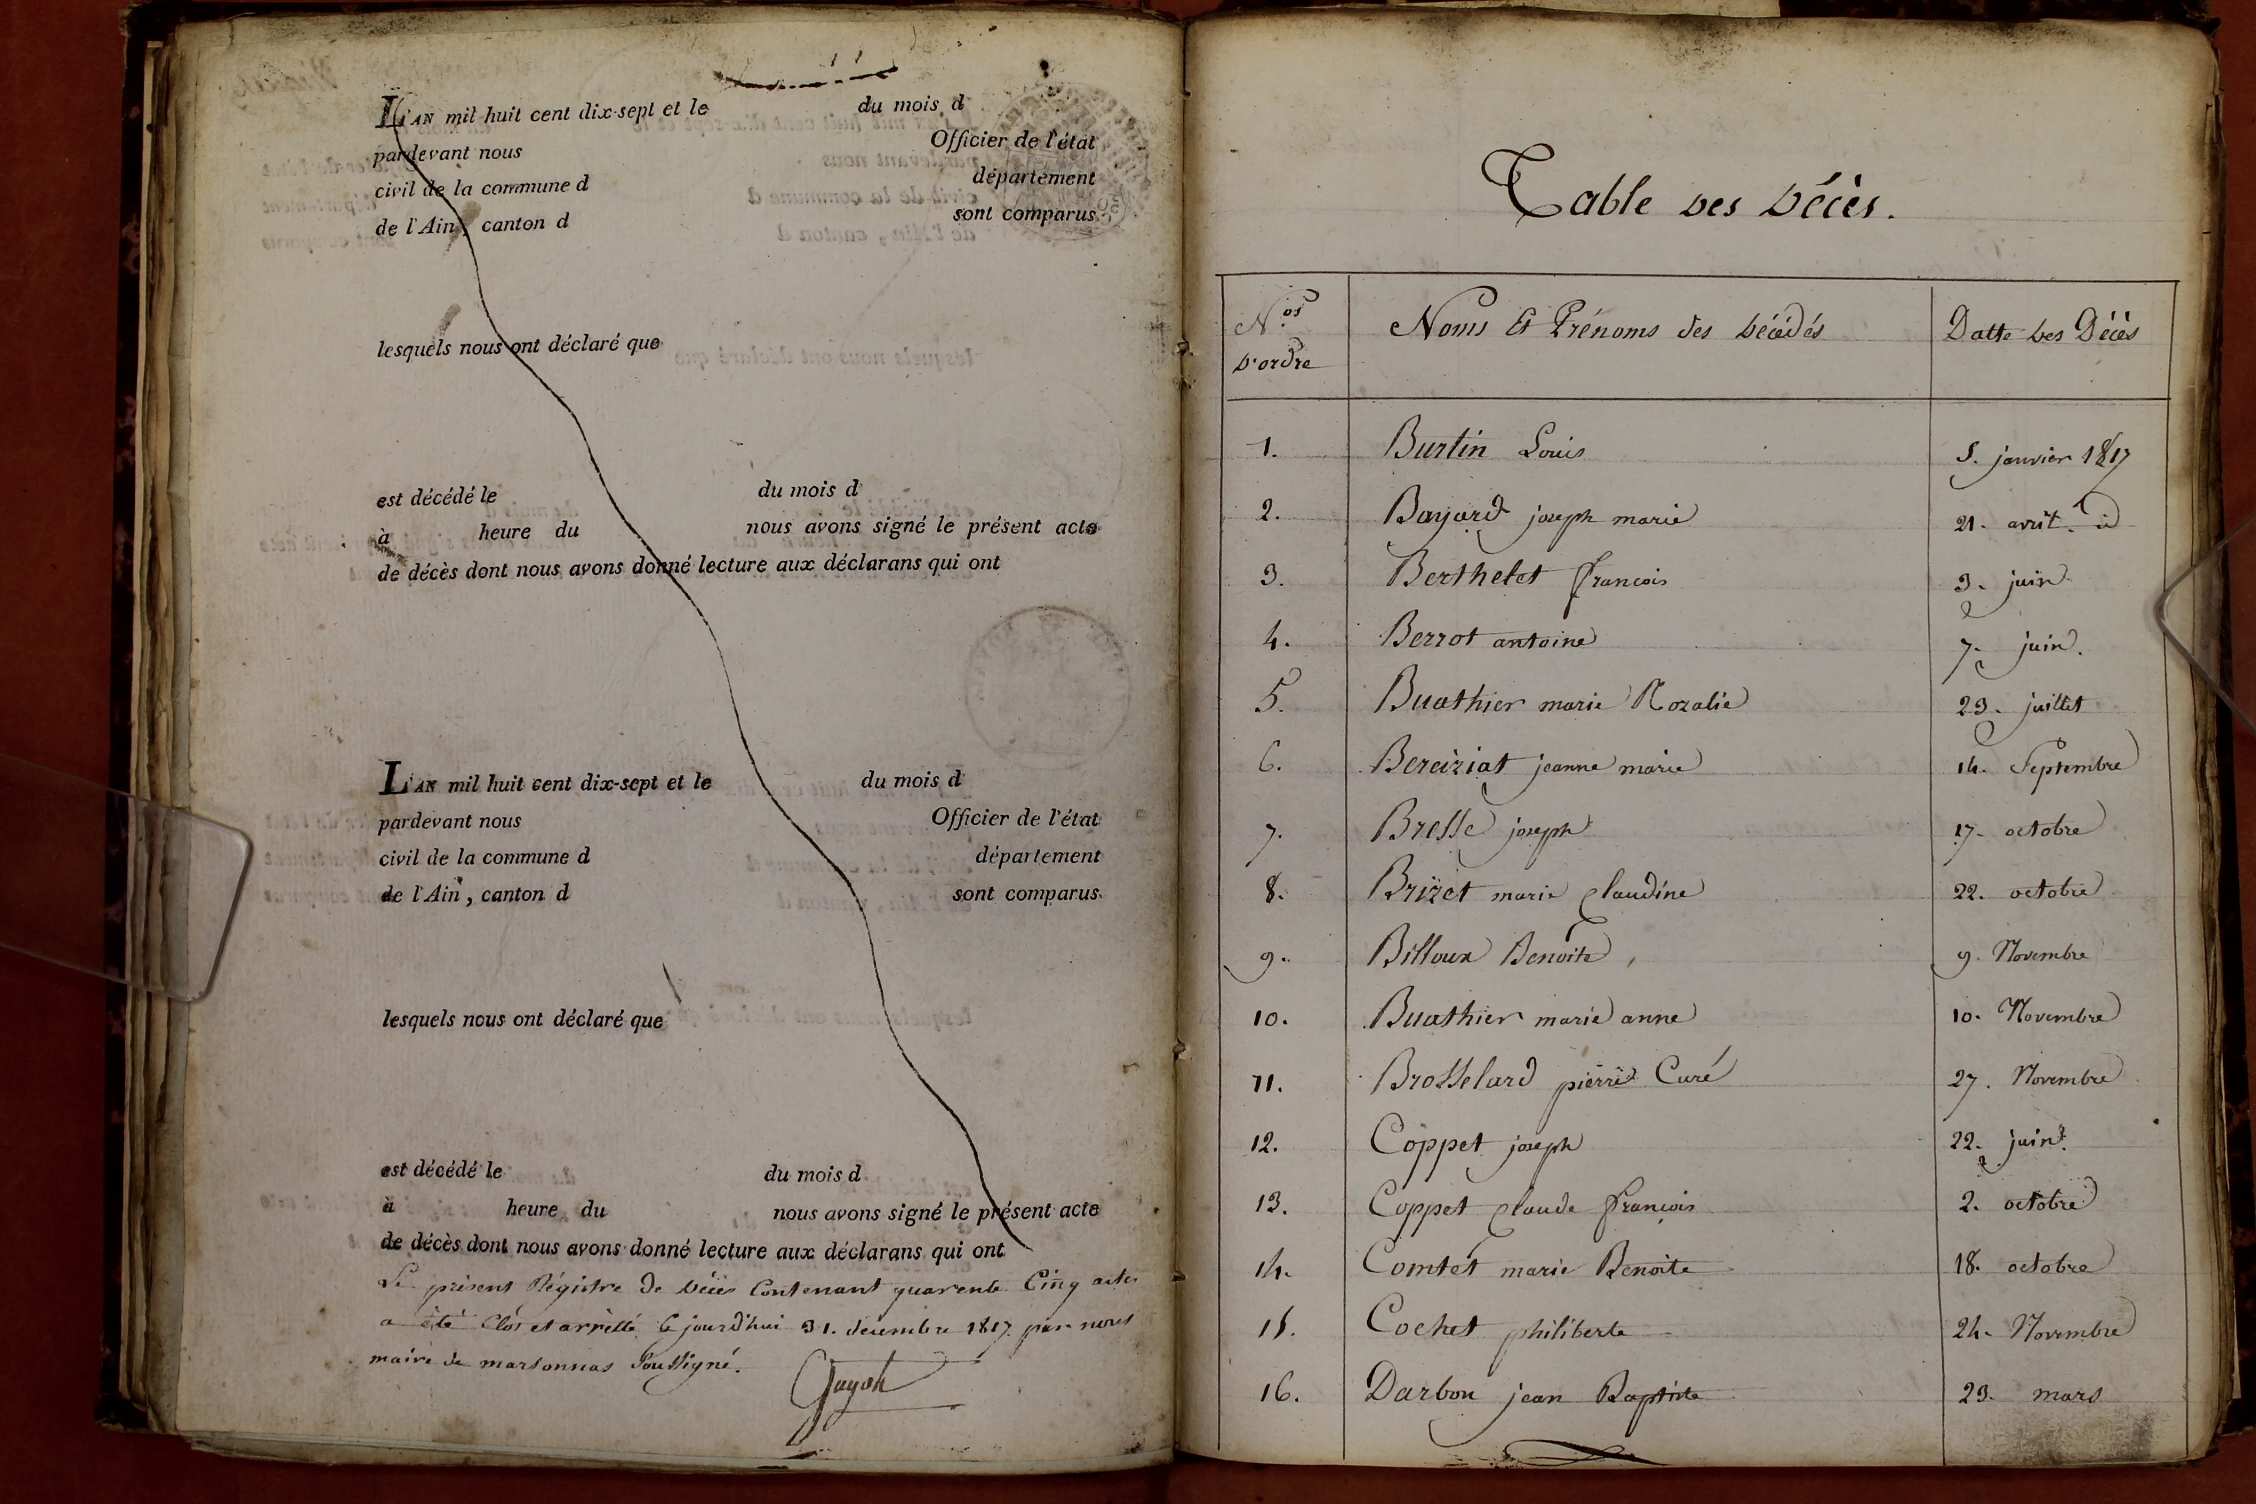 L'AN mil huit cent dix-sept et le du mois d
pardevant nous Officier de l'état
civil de la commune d département
de l'Ain, canton d sont comparus
lesquels nous ont déclaré que
est décédé le du mois d
à heure du nous avons signé le présent acte
de décès dont nous avons donné lecture aux déclarans qui ont
L'AN mil huit cent dix-sept et le du mois d
pardevant nous Officier de l'état
civil de la commune d département
de l'Ain, canton d sont comparus
lesquels nous ont déclaré que
est décédé le du mois d
à heure du nous avons signé le présent acte
de décès dont nous avons donné lecture aux déclarans qui ont
Le présent Régistre de décès Contenant quarente Cinq actes
a été Clos et arrêtté Ce jourd'hui 31. décembre 1817 par nous
maire de marsonnas Soussigné.
Guyon
Table des décès.
N.os d'ordre Noms Et Prénoms des décédés Datte des Décès
1. Burtin Louis 5. janvier 1817
2. Bayard joseph marie 21. avril. id
3. Berthelet françois 3. juin
4. Berrot antoine 7. juin.
5. Buathier marie Rozalie 23. juillet
6. Bereiziat jeanne marie 14. Septembre
7. Bresse joseph 17. octobre
8. Brizet marie Claudine 22. octobre
9. Billoux Benoite 9. Novembre
10. Buathier marie anne 10. Novembre
11. Brosselard pierre Curé 27. Novembre
12. Coppet joseph 22. juin.
13. Coppet Claude françois 2. octobre
14. Comtet marie Benoite 18. octobre
15. Cochet philiberte 24. Novembre
16. Darbon jean Baptiste 23. mars